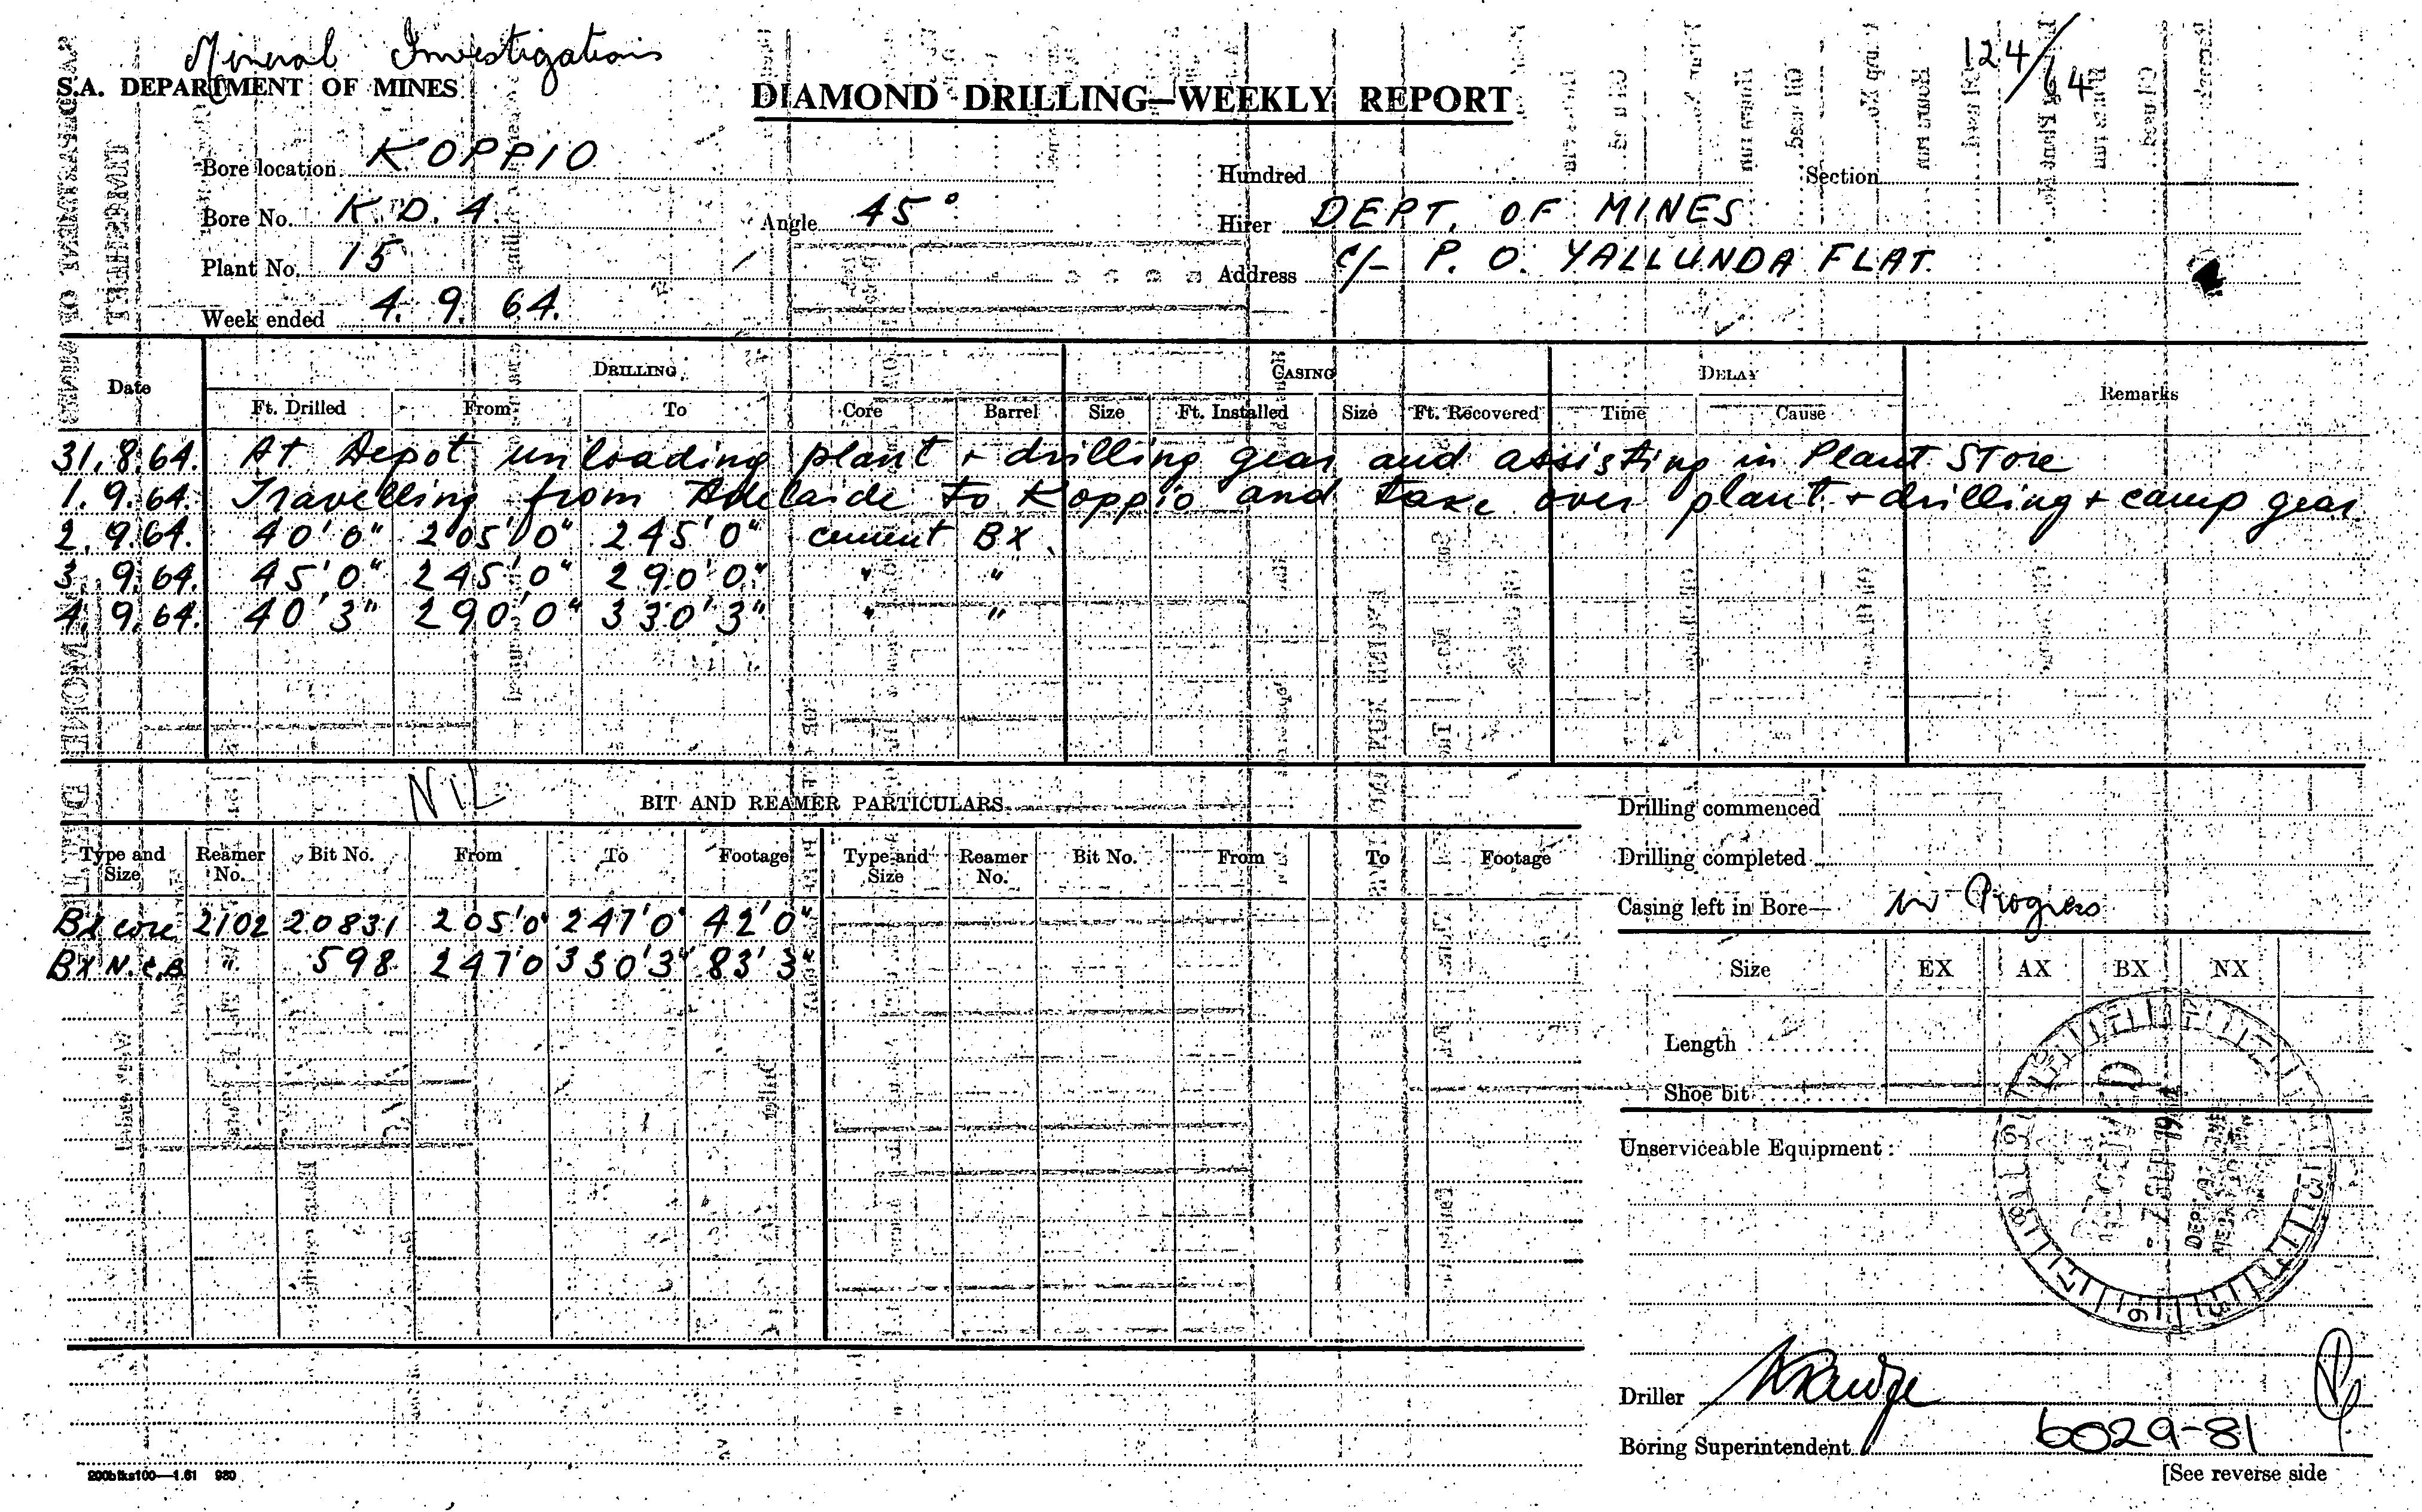 Mineral Investigations
124/64
S.A. DEPARTMENT OF MINES
DIAMOND DRILLING—WEEKLY REPORT
Bore location KOPPIO
Hundred Section
Bore No. K.D. 4. Angle 45°
Hirer DEPT. OF MINES
Plant No. 15
Address c/- P. O. YALLUNDA FLAT.
Week ended 4. 9. 64.
Date DRILLING CASING DELAY Remarks
Ft. Drilled From To Core Barrel Size Ft. Installed Size Ft. Recovered Time Cause
31.8.64. At Depot unloading plant + drilling gear and assisting in Plant Store
1.9.64. Travelling from Adelaide to Koppio and take over plant + drilling + camp gear.
2.9.64. 40'0" 205'0" 245'0" cement BX.
3.9.64. 45'0" 245'0" 290'0" " "
4.9.64. 40'3" 290'0" 330'3" " "
NIL
BIT AND REAMER PARTICULARS
Type and Size Reamer No. Bit No. From To Footage Type and Size Reamer No. Bit No. From To Footage
BX core 2102 20831 205'0" 247'0" 42'0"
BX N.C.B. " 598 247'0 330'3" 83'3"
Drilling commenced
Drilling completed
Casing left in Bore— in Progress
Size EX AX BX NX
Length
Shoe bit
Unserviceable Equipment:
Driller
Boring Superintendent
6029-81
200bks100—1.61 980
[See reverse side